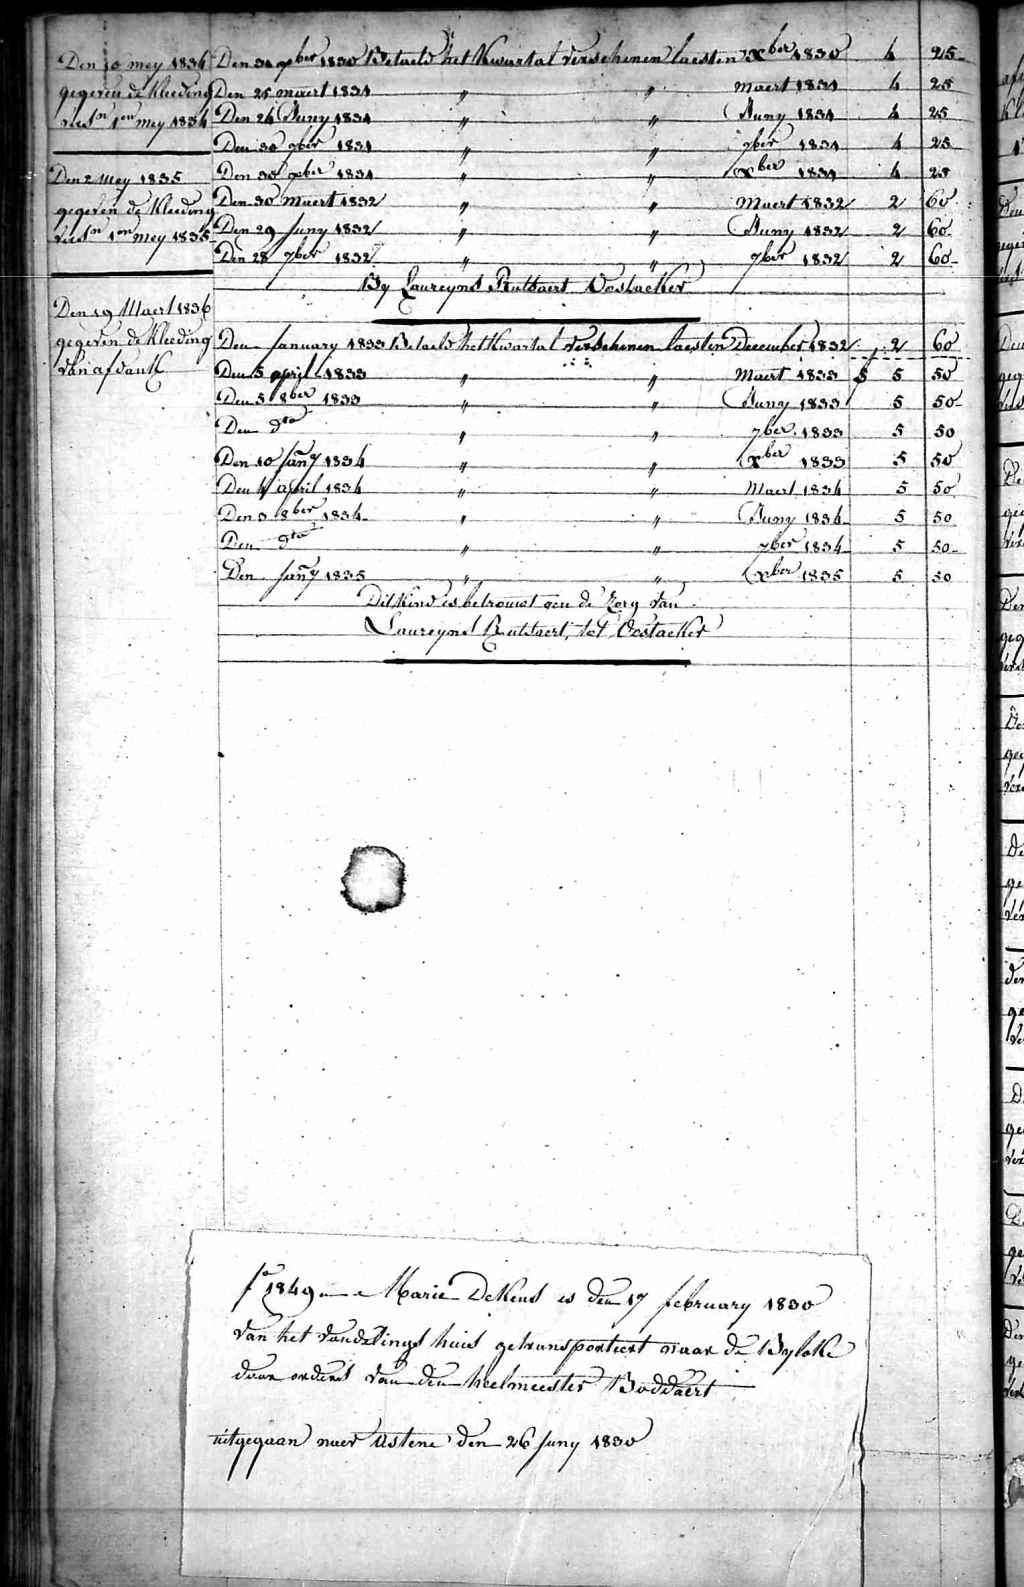 Den 10 mey 1834
gegeven de Kleeding
verst 1en mey 1834
Den 2 Mey 1835
gegeven de Kleeding
verst 1en mey 1835
Den 19 Maert 1836
gegeven de Kleeding
van afdank
Den 31 xber 1830 Betaeld het Kwartal verschenen laesten xber 1830 4 25
Den 25 maert 1831 " " maert 1831 4 25
Den 24 Juny 1831 " " Juny 1831 4 25
Den 30 7ber 1831 " " 7ber 1831 4 25
Den 30 xber 1831 " " xber 1831 4 25
Den 30 Maert 1832 " " Maert 1832 2 60
Den 29 Juny 1832 " " Juny 1832 2 60
Den 28 7ber 1832 " " 7ber 1832 2 60
By Laureyns Oostacker
Den January 1833 Betaeld het Kwartal verschenen laesten December 1832 2 60
Den 5 april 1833 " " Maert 1833 5 50
Den 5 8ber 1833 " " Juny 1833 5 50
Den dto " " 7ber 1833 5 50
Den 10 Jany 1834 " " xber 1833 5 50
Den 4 april 1834 " " Maert 1834 5 50
Den 3 8ber 1834 " " Juny 1834 5 50
Den dto " " 7ber 1834 5 50
Den Jany 1835 " " xber 1835 5 50
Dit Kind is betrouwt aen de Zorg van
Laureyns tot Oostacker
fo 1849 Marie DeKens is den 17 february 1830
van het vondelings huis getransporteert naar de Byloke
door orders van den heelmeester Boddaert
uitgegaan naer Astene den 26 Juny 1830